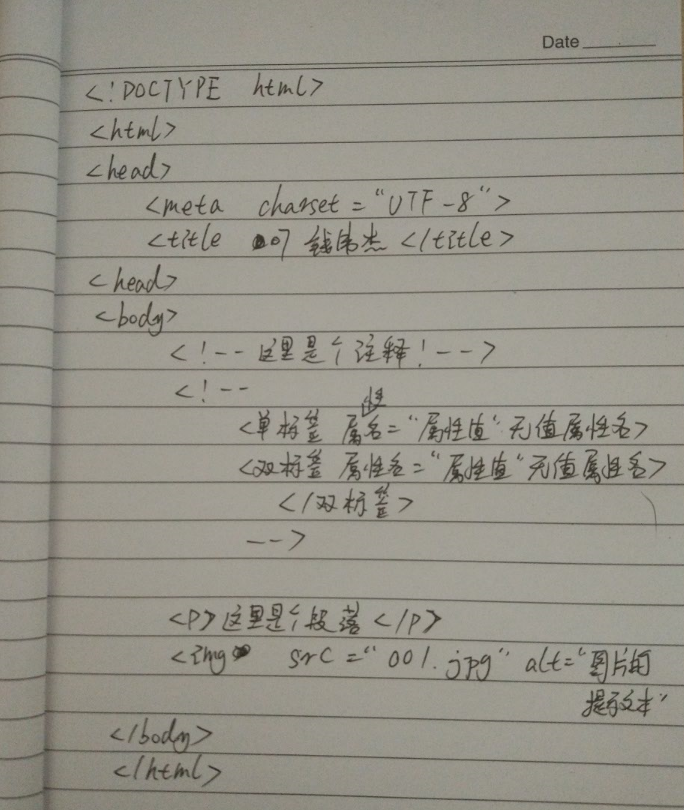 Date
<!DOCTYPE html>
<html>
<head>
<meta charset="UTF-8">
<title 07 钱伟杰 </title>
<head>
<body>
<!-- 这里是个注释!-->
<!--
<单标签 属性名="属性值" 无值属性名>
<双标签 属性名="属性值" 无值属性名>
</双标签>
-->
<p>这里是个段落</p>
<img src="001.jpg" alt="图片的
提示文本"
</body>
</html>